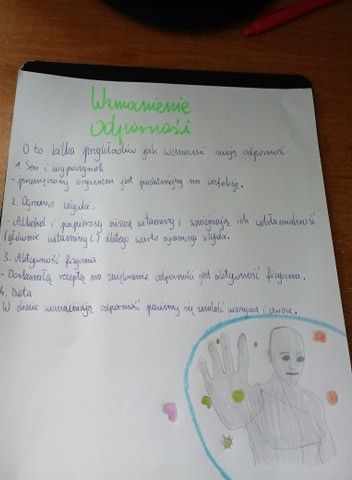 Wzmacnienie
odporności
O to kilka przykładów jak wzmocnić swoją odporność.
1. Sen i wypoczynek
- przemęczony organizm jest podatniejszy na infekcje.
2. Ogranicz używki.
- Alkohol i papierosy niszczą witaminy i zmniejszają ich wchłanialność
(głównie witaminy C) dlatego warto ograniczyć używki.
3. Aktywność fizyczna
- Doskonałą receptą na zwiększenie odporności jest aktywność fizyczna.
4. Dieta
W diecie wzmacniającej odporność powinny się znaleźć warzywa i owoce.